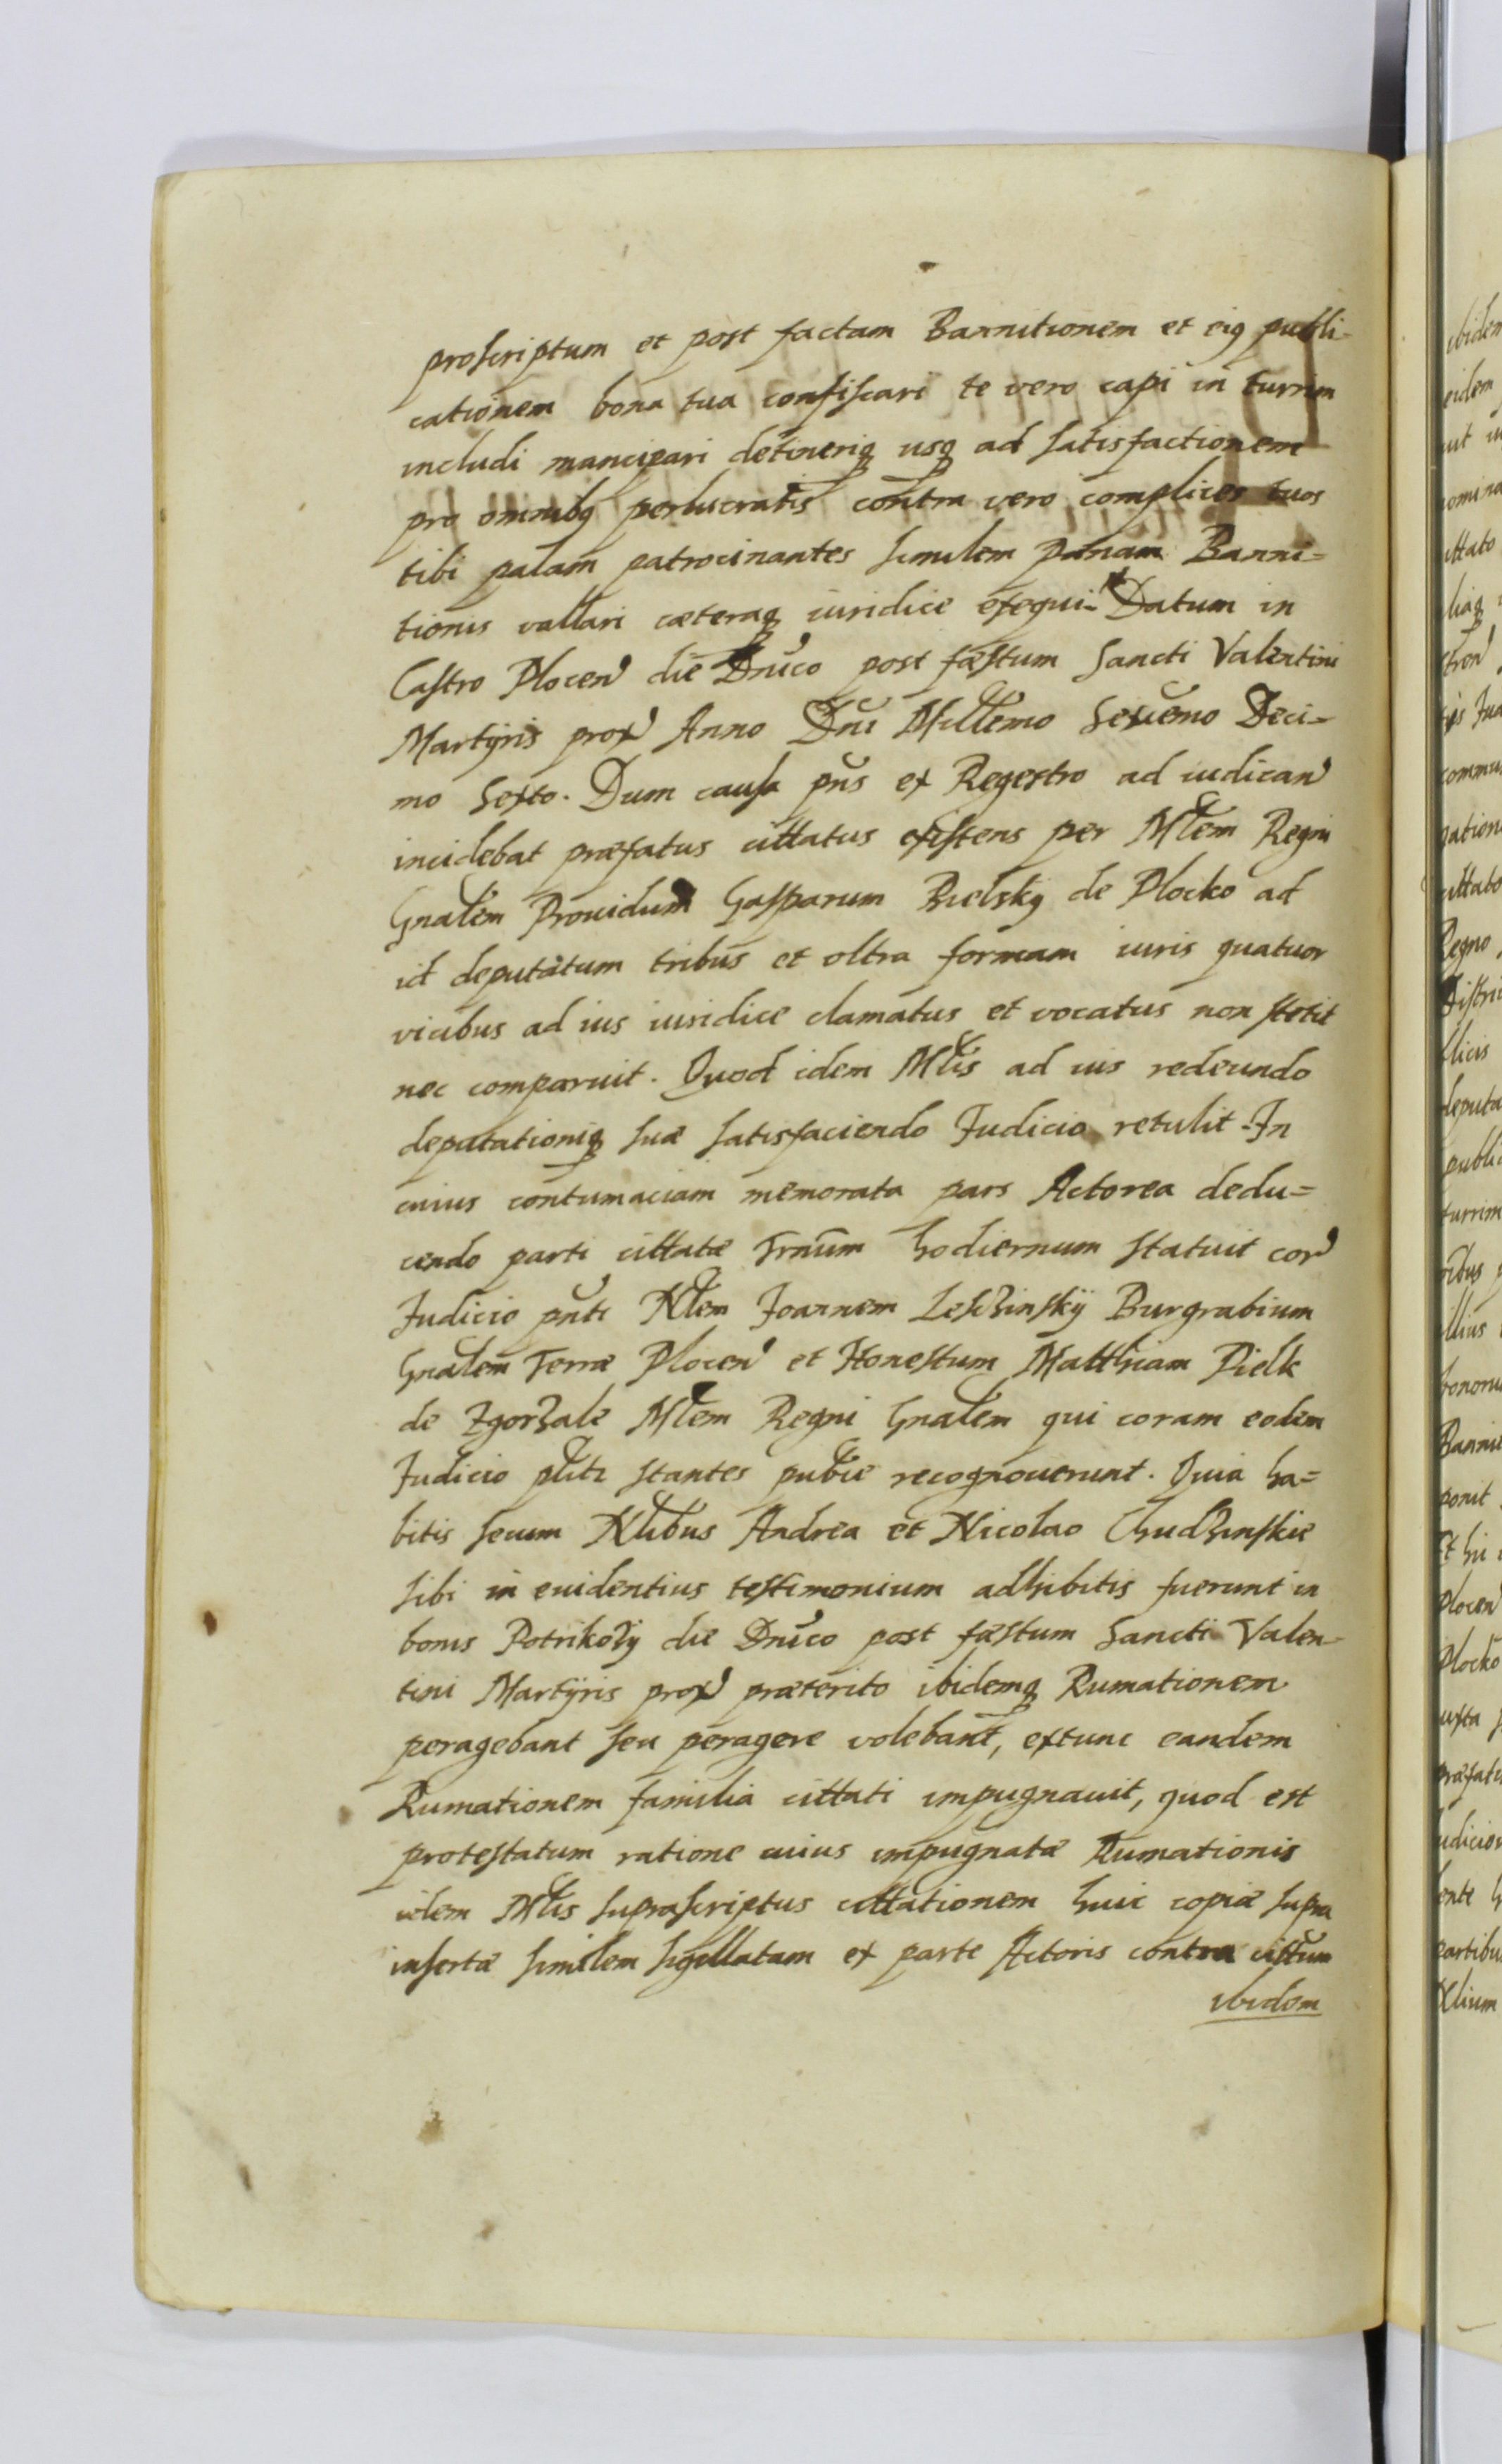 proscriptum et post factam Bannitionem et eiq publi-
cationem bona tua confiscari te vero capi in turrim
includi mancipari detineriq usq ad satisfactionem
pro omnibq perlucratis contra vero complices tuos
tibi palam patrocinantes similem pœnam Banni=
tionis vallari cæteraq iuridice exequi. Datum in
Castro Plocen die Dnico post fæstum Sancti Valentini
Martyris prox Anno Dni Millemo Sexcemo Deci=
mo Sexto. Dum causa pns ex Regestro ad iudican
incidebat præfatus cittatus existens per Mlem Regni
Gnalem Prouidum Gasparum Bielsky de Plocko ad
id deputatum tribus et vltra formam iuris quatuor
vicibus ad ius iuridice clamatus et vocatus non stetit
nec comparuit. Quod idem Mlis ad ius redeundo
deputationiq suæ satisfaciendo Iudicio retulit. In
cuius contumaciam memorata pars Actorea dedu=
cendo parti cittatæ Trnum hodiernum statuit cor
Iudicio pnti Nlem Joannem Leszinskÿ Burgrabium
Gnalem Terræ Plocen et Honestum Matthiam Pielk
de Zgorzale Mlem Regni Gnalem qui coram eodem
Iudicio pntr stantes publie recognouerunt. Quia ha=
bitis secum Nlibus Andrea et Nicolao Chudzinskie
sibi in euidentius testimonium adhibitis fuerunt in
bonis Potrikozy die Dnico post fæstum Sancti Valen-
tini Martyris prox præterito ibidemq Rumationem
peragebant seu peragere volebant, extunc eandem
Rumationem familia cittati impugnauit, quod est
protestatum ratione cuius impugnatæ Rumationis
idem Mlis suprascriptus cittationem huic copiæ supra
insertæ similem sigillatam ex parte Actoris contra cittum
ibidem